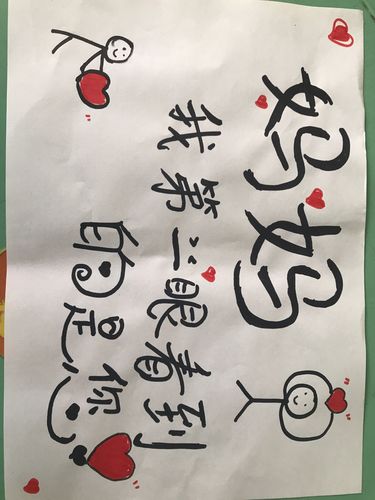 妈妈
我第一眼看到
的是你